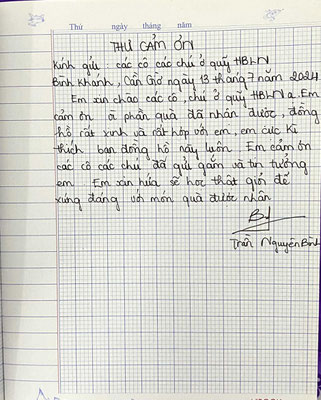 Thứ ngày tháng năm
THƯ CẢM ƠN
Kính gửi : các cô các chú ở quỹ HBLN
Bình Khánh, Cần Giờ ngày 13 tháng 7 năm 2024
Em xin chào các cô, chú ở quỹ HBLN ạ. Em
cảm ơn ạ phần quà đã nhận được, đồng
hồ rất xinh và rất hợp với em, em cực kì
thích bạn đồng hồ này luôn. Em cảm ơn
các cô các chú đã gửi gắm và tin tưởng
em. Em xin hứa sẽ học thật giỏi để
xứng đáng với món quà được nhận
Trần Nguyên Bình